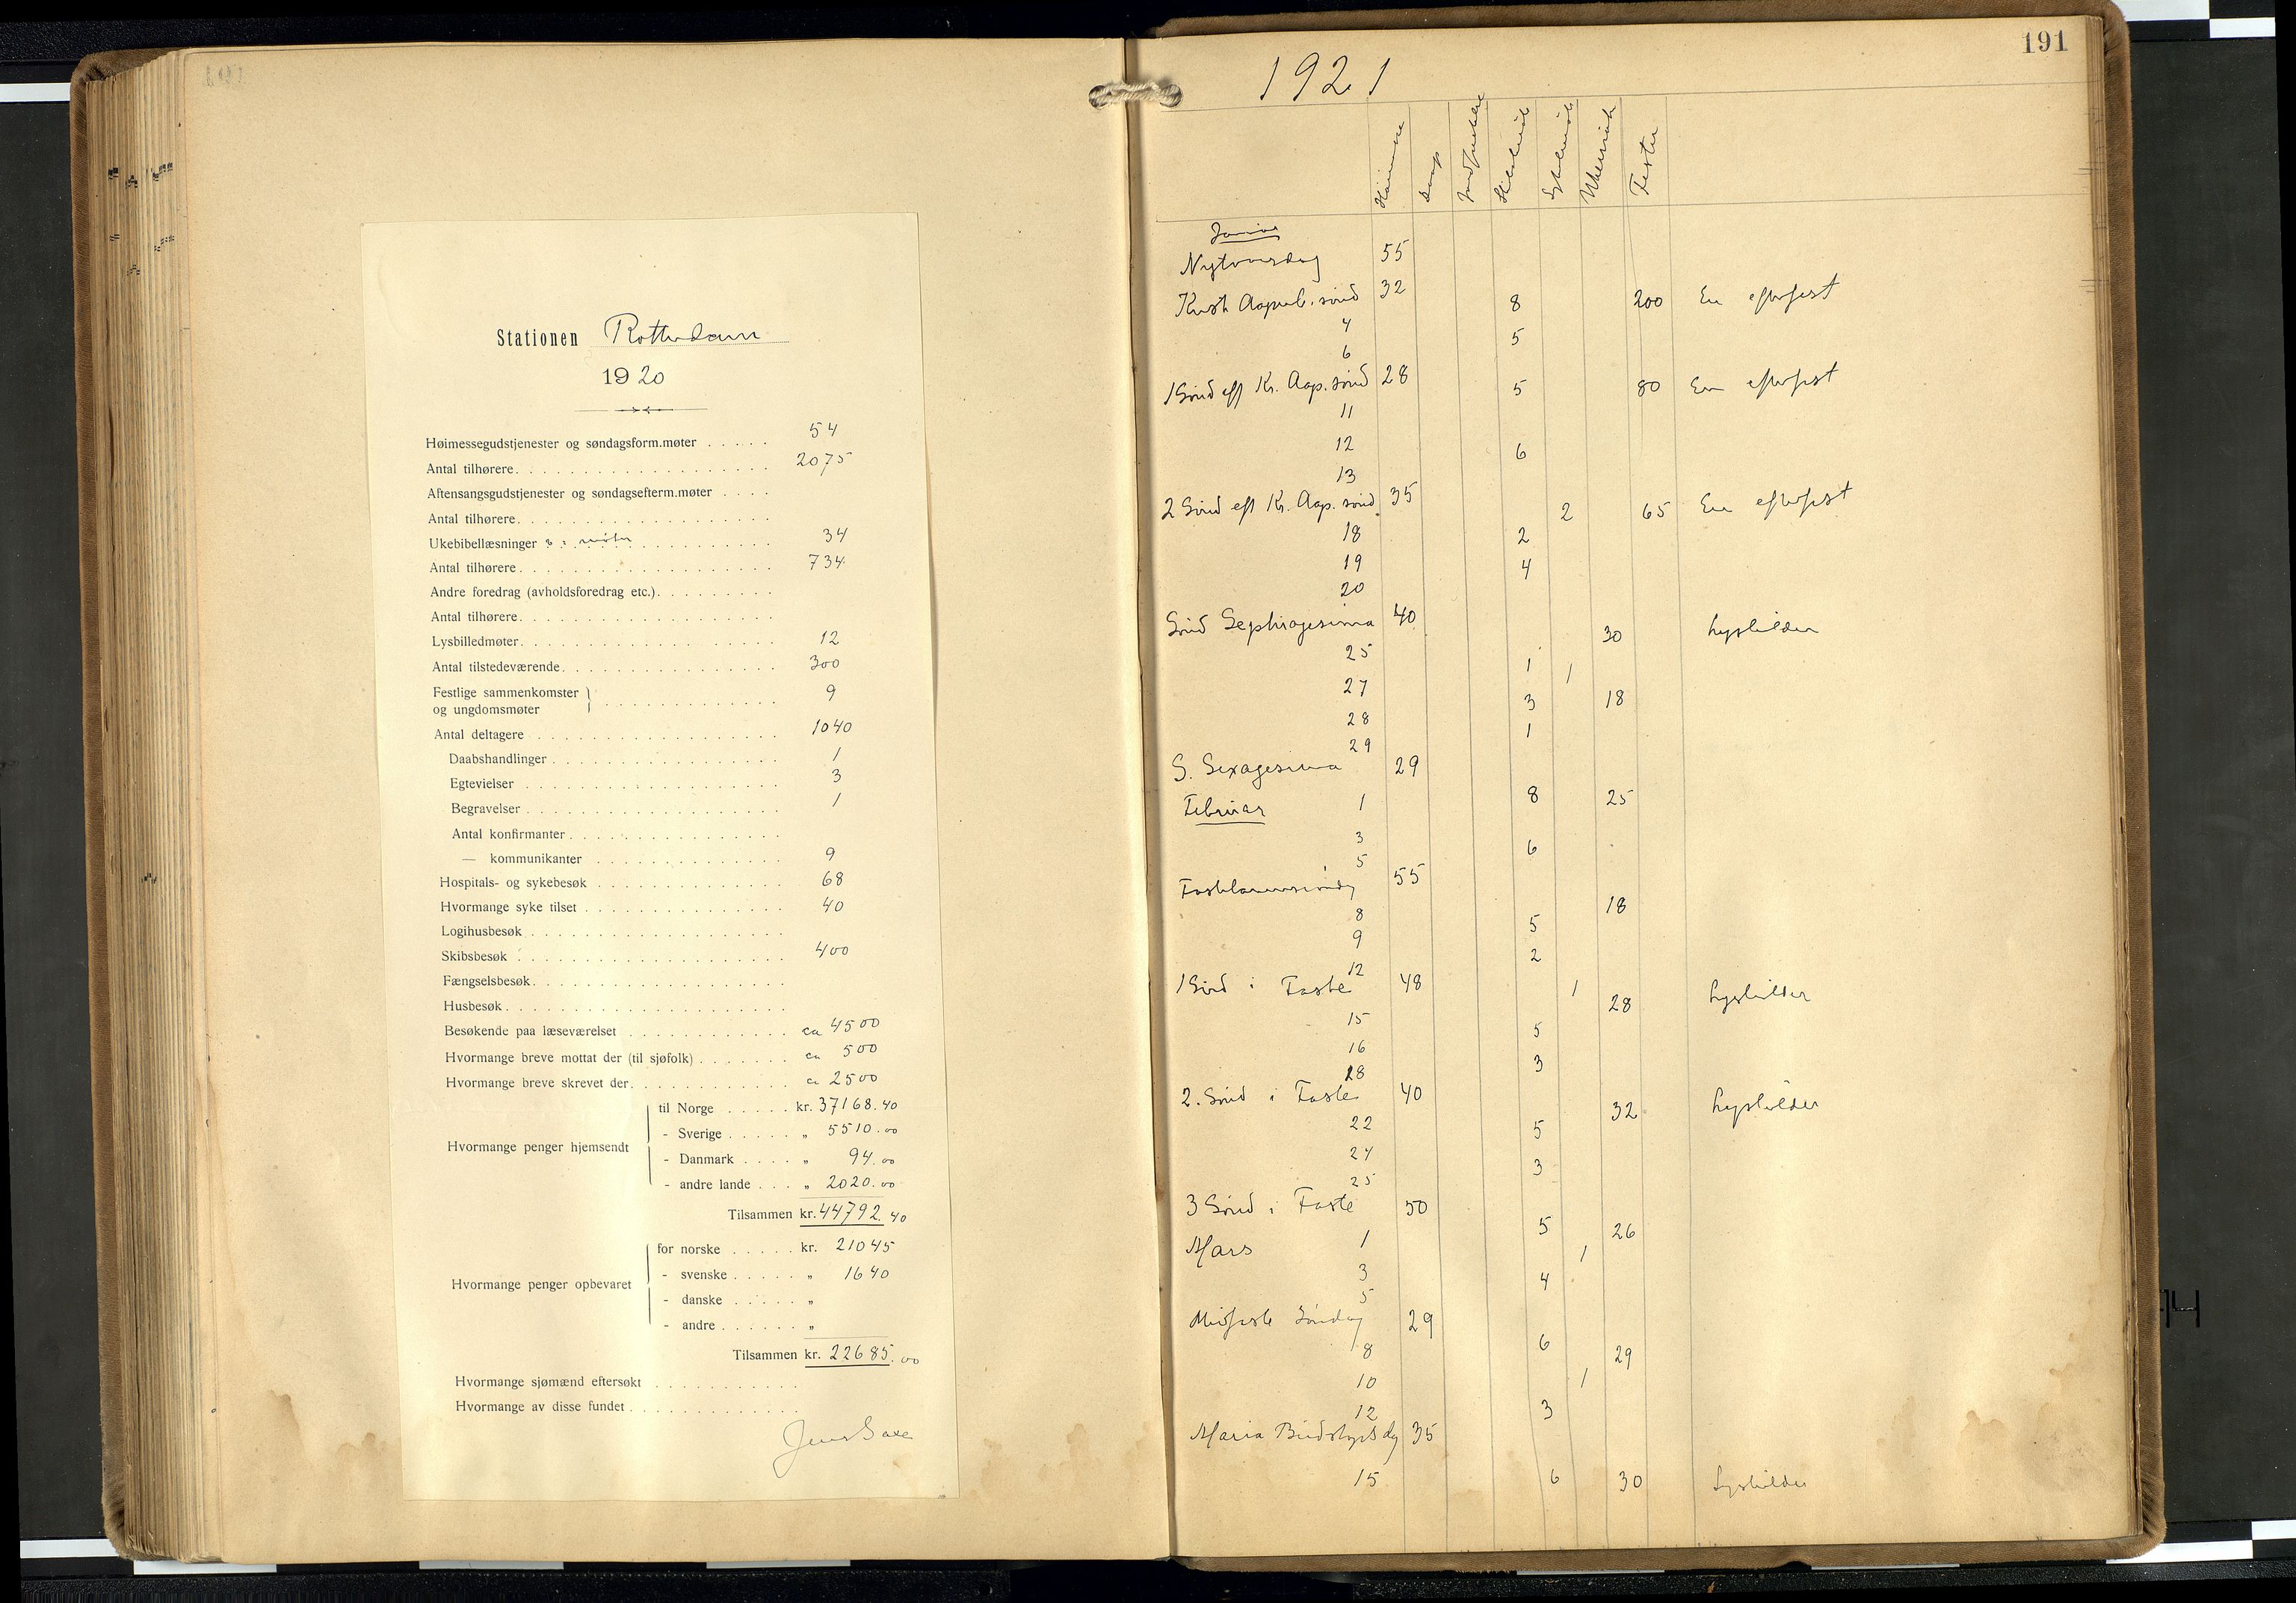 Stationen Rotterdam
1920
Høimessegudstjenester og søndagsform.møter . . . . . 54
Antal tilhørere . . . . . 2075
Aftensangsgudstjenester og søndagsefterm.møter . . . .
Antal tilhørere . . . . .
Ukebibellæsninger o: møter . . . . . 34
Antal tilhørere . . . . . 734
Andre foredrag (avholdsforedrag etc.) . . . . .
Antal tilhørere . . . . .
Lysbilledmøter . . . . . 12
Antal tilstedeværende . . . . . 300
Festlige sammenkomster
og ungdomsmøter . . . . . 9
Antal deltagere . . . . . 1040
Daabshandlinger . . . . . 1
Egtevielser . . . . . 3
Begravelser . . . . . 1
Antal konfirmanter . . . . .
— kommunikanter . . . . . 9
Hospitals- og sykebesøk . . . . . 68
Hvormange syke tilset . . . . . 40
Logihusbesøk . . . . .
Skibsbesøk . . . . . 400
Fængselsbesøk . . . . .
Husbesøk . . . . .
Besøkende paa læseværelset . . . . . ca 4500
Hvormange breve mottat der (til sjøfolk) . . . . . ca 500
Hvormange breve skrevet der . . . . . ca 2500
Hvormange penger hjemsendt
til Norge . . . . . kr. 37168.40
- Sverige . . . . . „ 5510.00
- Danmark . . . . „ 94.00
- andre lande . . . „ 2020.00
Tilsammen kr. 44792.40
Hvormange penger opbevaret
for norske . . . . . kr. 21045
- svenske . . . . . „ 1640
- danske . . . . . „
- andre . . . . . . „
Tilsammen kr. 22685.00
Hvormange sjømænd eftersøkt . . . . .
Hvormange av disse fundet . . . . .
191
1921
Høimesse Daap Skibsbesøk Sykebesøk Ukemøte Fester
Januar
Nytaarsdag 55
Krist Aapenb. sønd 32 8 200 En efterfest
4
6 5
1 Sønd eft Kr. Aap. sønd 28 5 80 En efterfest
11
12 6
13
2 Sønd eft Kr. Aap. sønd. 35 2 65 En efterfest
18 2
19 4
20
Sønd Septuagesima 40 30 Lysbilder
25 1 1
27 3 18
28 1
29
S. Sexagesima 29
Februar 1 8 25
3 6
5
Fastelavnssøndag 55
8 5 18
9 2
12
1 Sønd i Faste 48 1 28 Lysbilder
15 5
16 3
18
2. Sønd i Faste 40 32 Lysbilder
22 5
24 3
25
3 Sønd i Faste 50
Mars 1 5 26
3 4 1
5
Midfaste Søndag 29
8 6 29
10 1
12 3
Maria Budskapsdg 35
15 6 30 Lysbilder